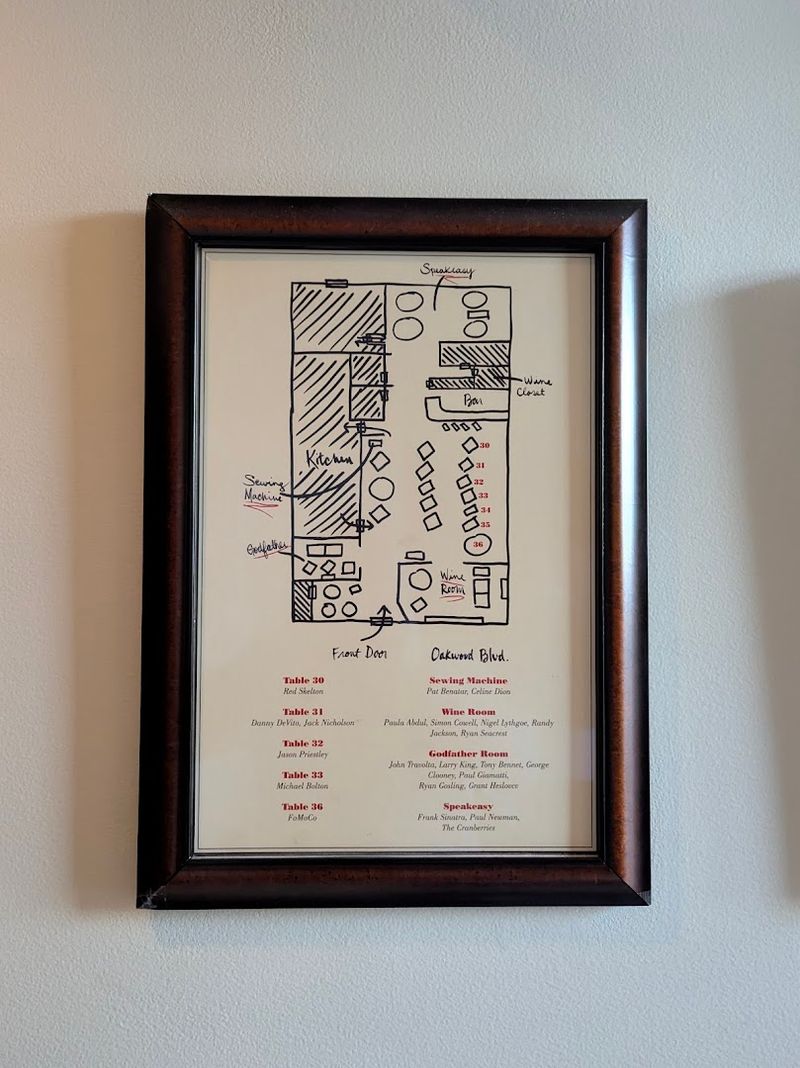 Speakeasy
Wine
Closet
Bar
30
31
Kitchen
32
33
Sewing
Machine
34
35
36
Godfather
Wine
Room
Front Door
Oakwood Blvd.
Table 30
Red Skelton
Table 31
Danny DeVito, Jack Nicholson
Table 32
Jason Priestley
Table 33
Michael Bolton
Table 36
FoMoCo
Sewing Machine
Pat Benatar, Celine Dion
Wine Room
Paula Abdul, Simon Cowell, Nigel Lythgoe, Randy
Jackson, Ryan Seacrest
Godfather Room
John Travolta, Larry King, Tony Bennet, George
Clooney, Paul Giamatti,
Ryan Gosling, Grant Heslovev
Speakeasy
Frank Sinatra, Paul Newman,
The Cranberries